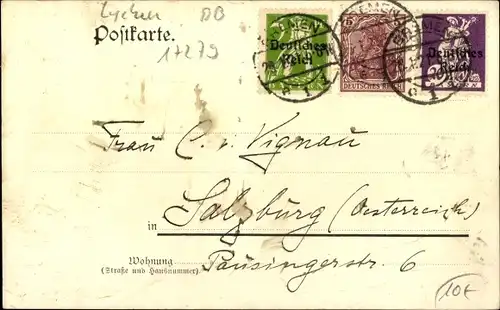 DB
Postkarte.
17279
Deutsches Reich
BREMEN
DEUTSCHES REICH
BREMEN
Deutsches Reich
Frau C. v. Vignau
in Salzburg (Oesterreich)
Wohnung
(Straße und Hausnummer)
Pausingerstr. 6
10€